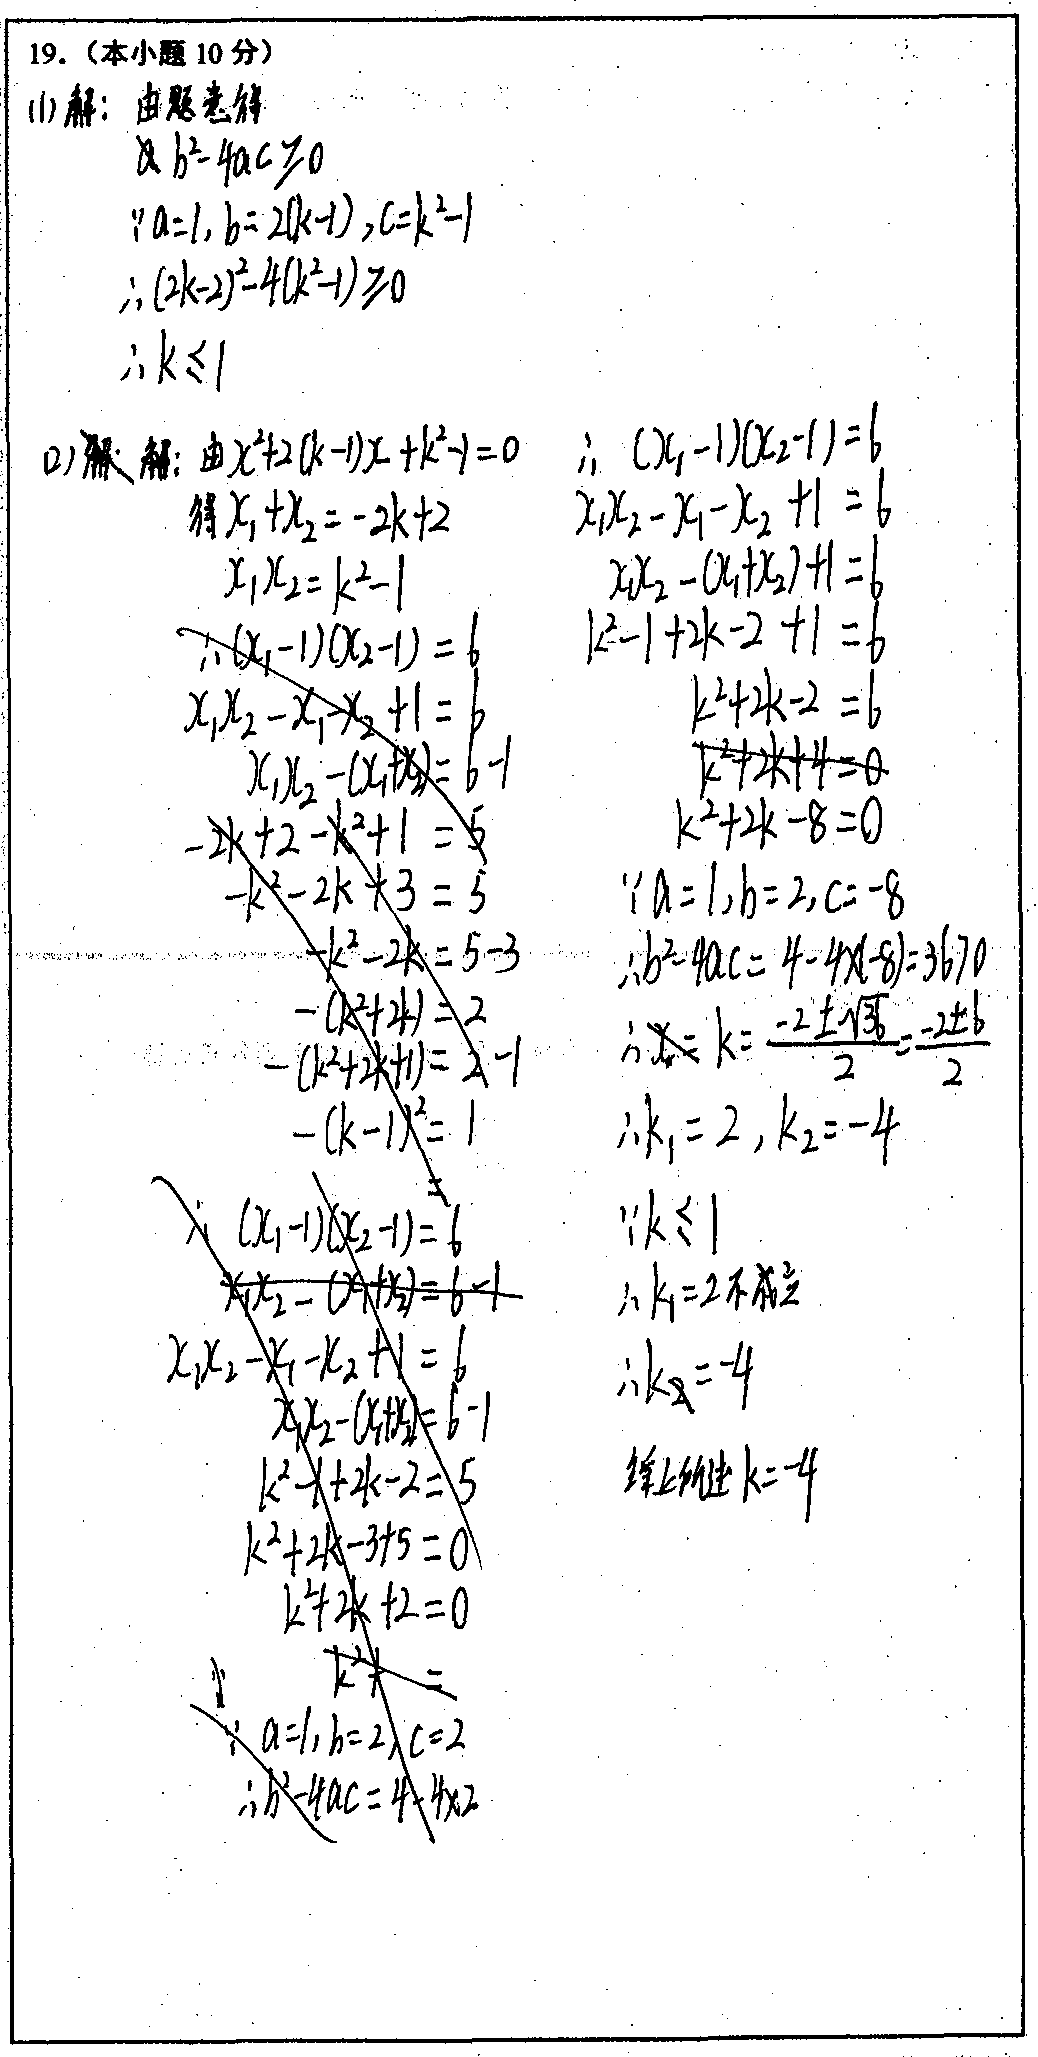 19.（本小题 10 分）
(1)解：由题意得
b²-4ac≥0
∵a=1, b=2(k-1), c=k²-1
∴(2k-2)²-4(k²-1)≥0
∴k≤1
(2) 解：由x²+2(k-1)x+k²-1=0
得x₁+x₂=-2k+2
x₁x₂=k²-1
∴(x₁-1)(x₂-1)=6
x₁x₂-x₁-x₂+1=6
x₁x₂-(x₁+x₂)=6-1
-2k+2-k²+1=5
-k²-2k+3=5
-k²-2k=5-3
-(k²+2k)=2
-(k²+2k+1)=2-1
-(k-1)²=1
=
∴ (x₁-1)(x₂-1)=6
x₁x₂-(x₁+x₂)=6-1
x₁x₂-x₁-x₂+1=6
x₁x₂-(x₁+x₂)=6-1
k²-1+2k-2=5
k²+2k-3+5=0
k²+2k+2=0
k²+ =
∵ a=1, b=2, c=2
∴b²-4ac=4-4×2
∴ (x₁-1)(x₂-1)=6
x₁x₂-x₁-x₂+1=6
x₁x₂-(x₁+x₂)+1=6
k²-1+2k-2+1=6
k²+2k-2=6
k²+2k+4=0
k²+2k-8=0
∵a=1, b=2, c=-8
∴b²-4ac=4-4×(-8)=36>0
∴x= k=(-2±√36)/2=(-2±6)/2
∴k₁=2, k₂=-4
∵k≤1
∴k₁=2不成立
∴k=-4
综上所述k=-4